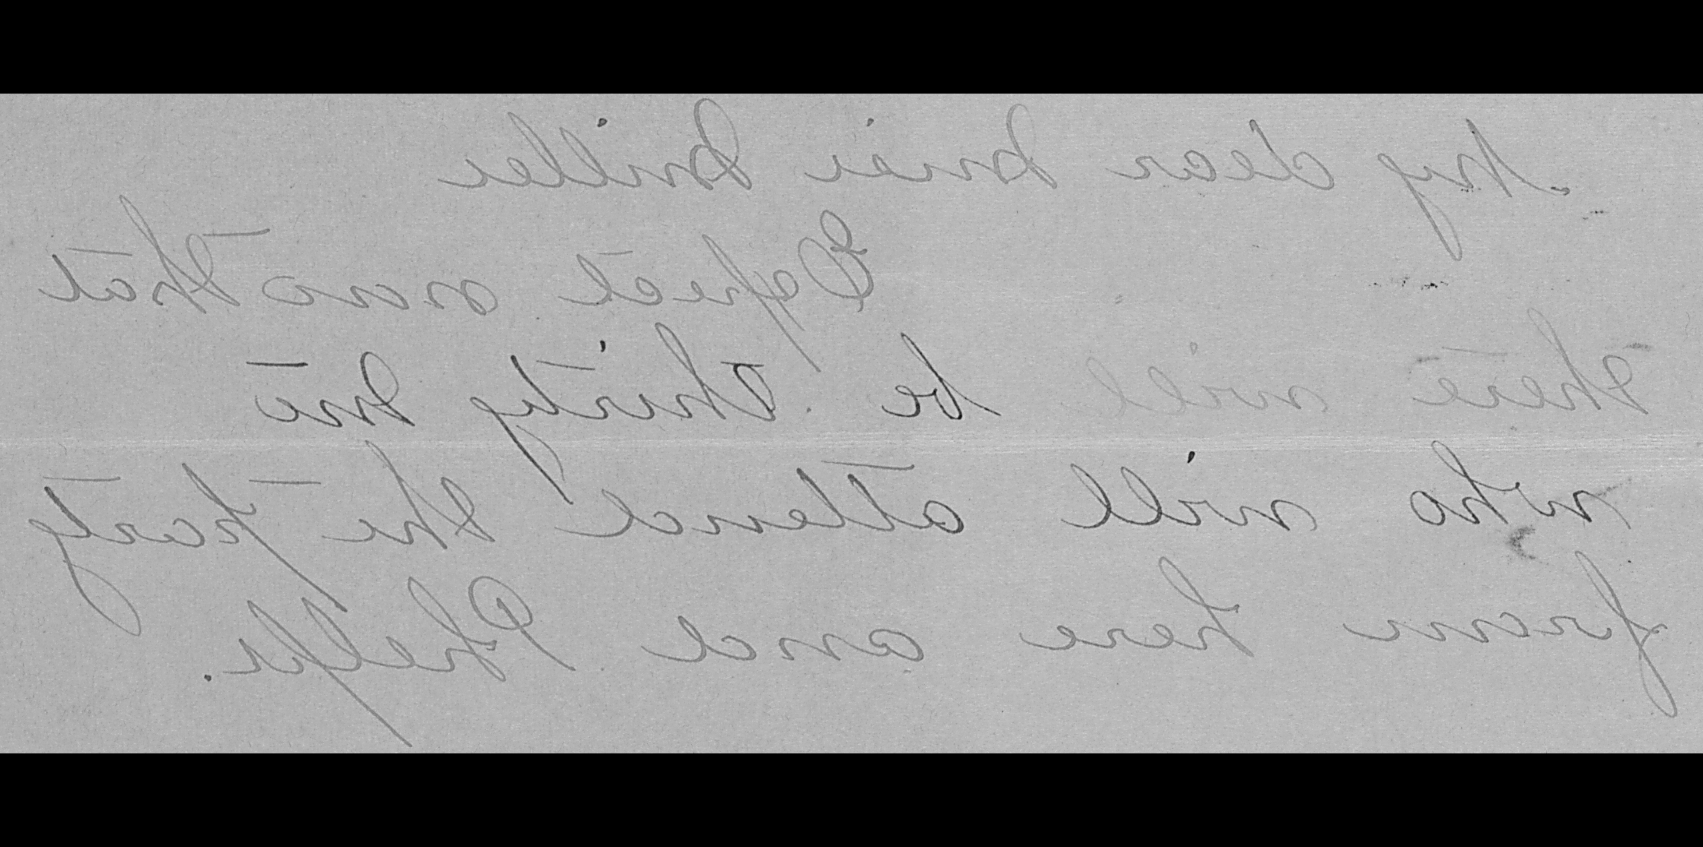 My dear Miss Miller
Expect now that
there will be thirty five
who will attend the party
from here and Phelps.